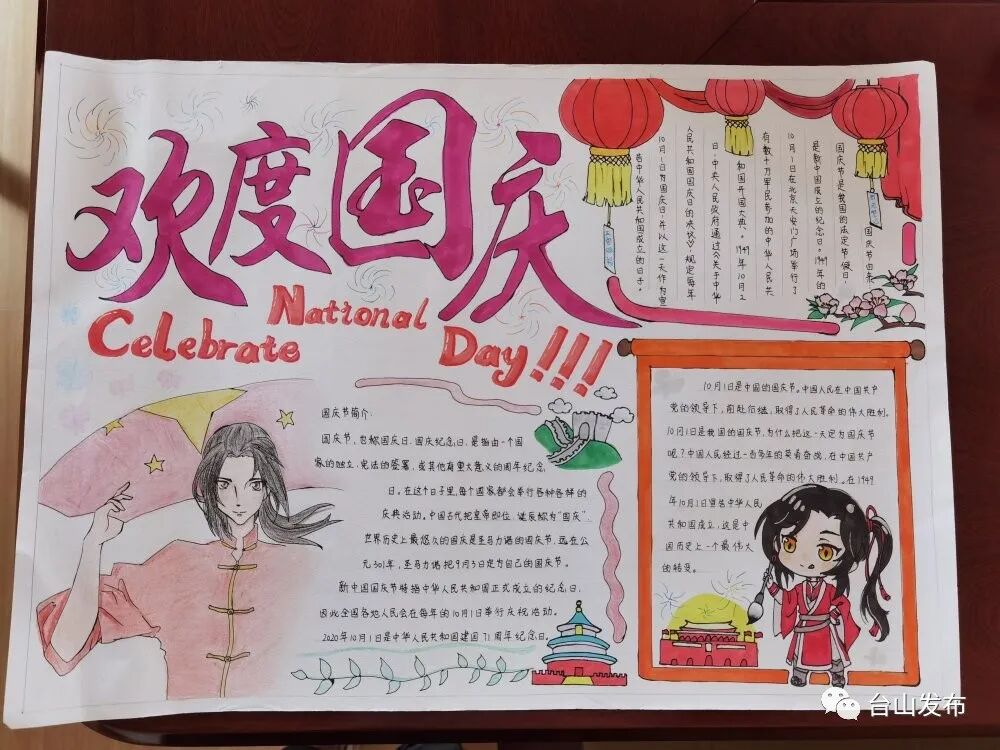 欢度国庆
Celebrate National Day!!!
国庆节由来
国庆节是我国的法定节假日,
是新中国成立的纪念日。1949年的
10月1日在北京天安门广场举行了
有数十万军民参加的中华人民共
和国开国大典。1949年10月2
日,中央人民政府通过《关于中华
人民共和国国庆日的决议》,规定每年
10月1日为国庆日,并以这一天作为宣
告中华人民共和国成立的日子。
国庆节简介:
国庆节,也称国庆日、国庆纪念日,是指由一个国
家的独立、宪法的签署、或其他有重大意义的周年纪念
日。在这个日子里,每个国家都会举行各种各样的
庆典活动。中国古代把皇帝即位、诞辰称为"国庆"。
世界历史上最悠久的国庆是圣马力诺的国庆节,远在公
元301年,圣马力诺把9月3日定为自己的国庆节。
新中国国庆节特指中华人民共和国正式成立的纪念日,
因此全国各地人民会在每年的10月1日举行庆祝活动。
2020年10月1日是中华人民共和国建国71周年纪念日。
10月1日是中国的国庆节。中国人民在中国共产
党的领导下,前赴后继,取得了人民革命的伟大胜利。
10月1日是我国的国庆节,为什么把这一天定为国庆节
呢?中国人民经过一百多年的英勇奋战,在中国共产
党的领导下,取得了人民革命的伟大胜利。在1949
年10月1日宣告中华人民
共和国成立,这是中
国历史上一个最伟大
的转变。
台山发布